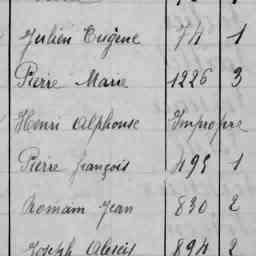 Julien Eugène 74 1
Pierre Marie 1226 3
Henri Alphonse Impropre
Pierre françois 495 1
Romain Jean 830 2
Joseph Alexis 894 2